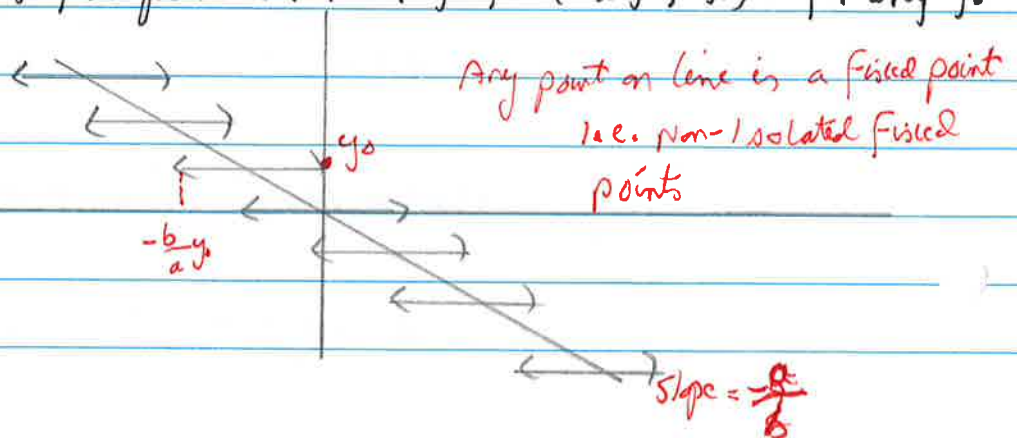 Any point on line is a fixed point
i.e. Non-Isolated Fixed
points
y₀
-b/a y₀
Slope = -a/b